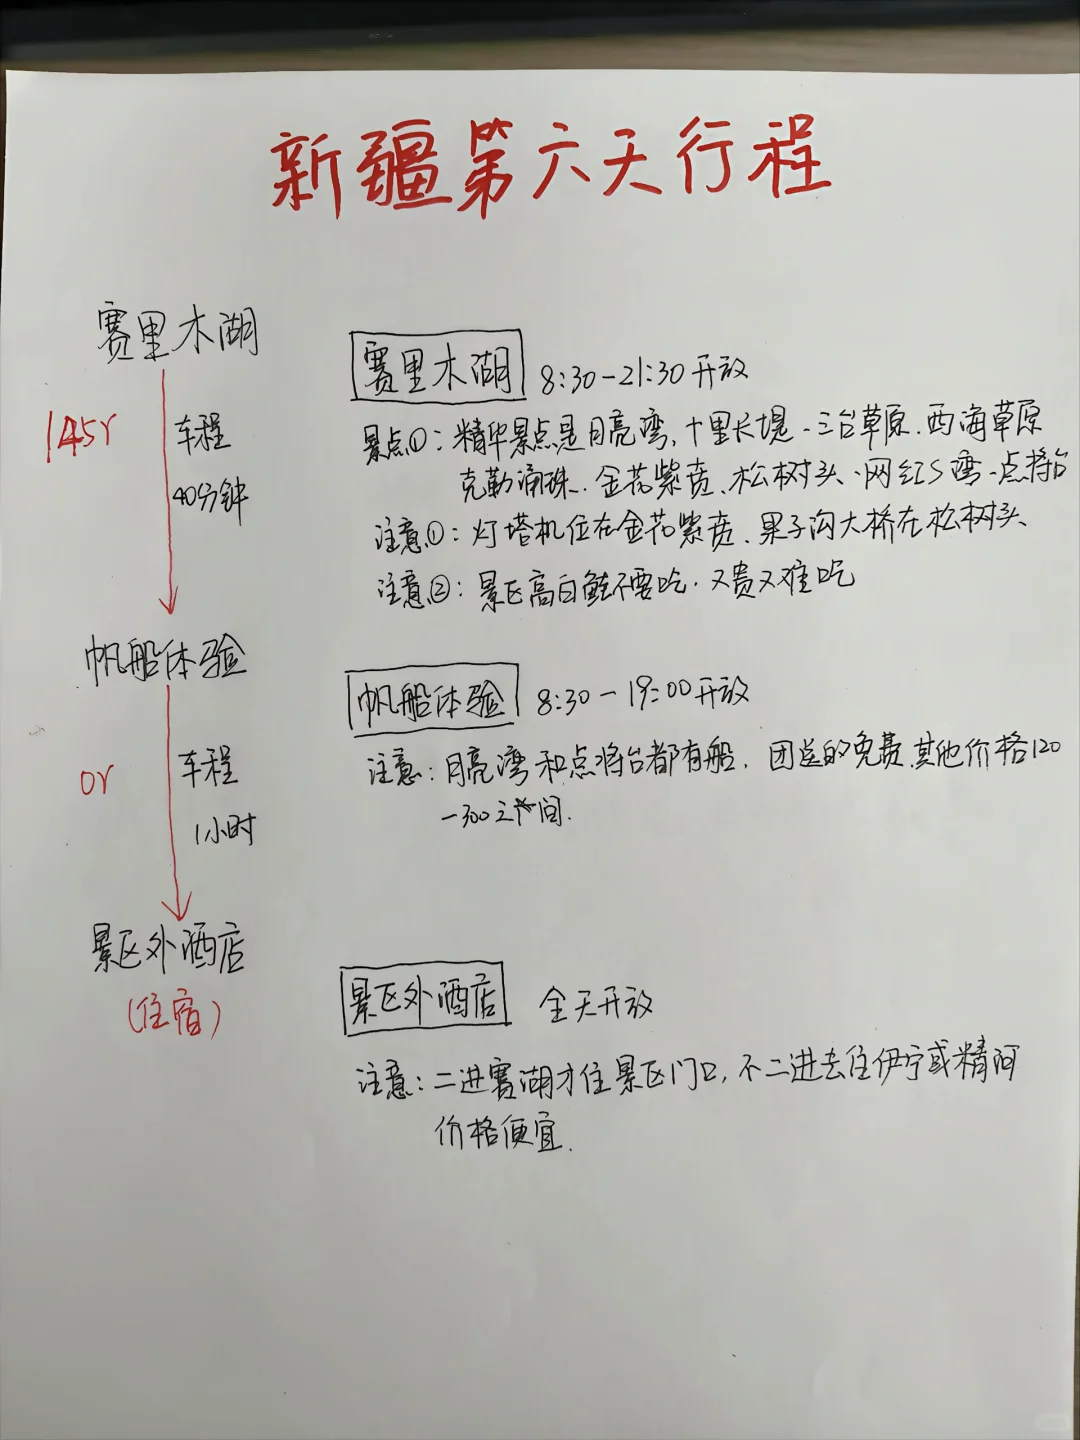 新疆第六天行程
赛里木湖
145r
车程
40分钟
帆船体验
0r
车程
1小时
景区外酒店
(住宿)
赛里木湖 8:30-21:30开放
景点①：精华景点是月亮湾、十里长堤、三台草原、西海草原
克勒涌珠、金花紫贲、松树头、网红S湾、点将台
注意①：灯塔机位在金花紫贲、果子沟大桥在松树头
注意②：景区高白鲑不要吃、又贵又难吃
帆船体验 8:30-19:00开放
注意：月亮湾和点将台都有船，团送的免费，其他价格120
-300之间.
景区外酒店 全天开放
注意：二进赛湖才住景区门口，不二进去住伊宁或精河
价格便宜.